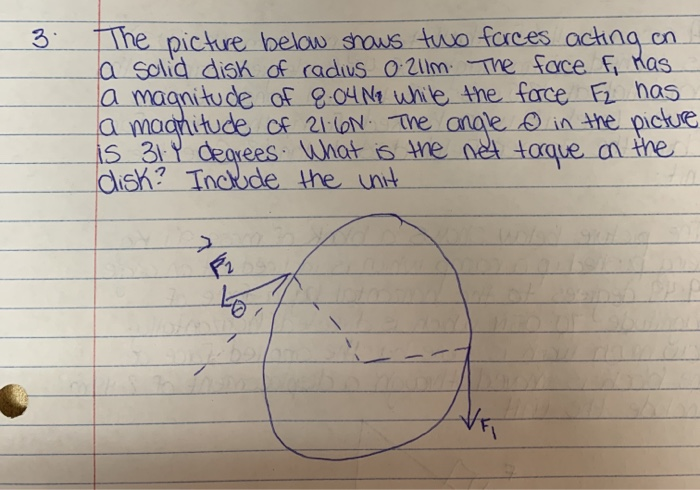 3. The picture below shows two forces acting on
a solid disk of radius 0.211m. The force F₁ has
a magnitude of 8.04N, while the force F₂ has
a magnitude of 21.6N. The angle θ in the picture
is 31.9 degrees. What is the net torque on the
disk? Include the unit
F₂
θ
F₁